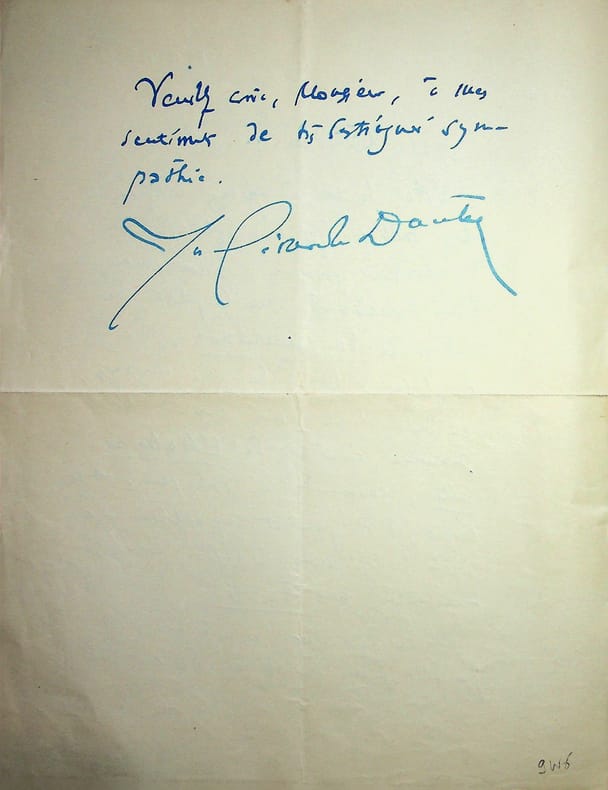 Veuillez croire, Monsieur, à mes
sentiments de très distinguée sym-
pathie.
9W6